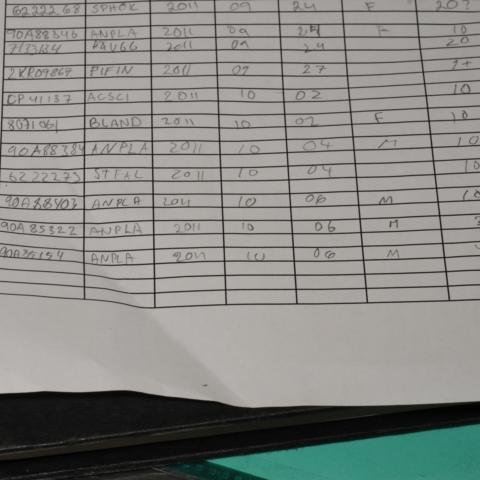 6222268 SPHOK 2011 09 24 F 20?
90A88346 ANPLA 2011 09 24 F 10
7133134 PAUGG 2011 09 24 20
2KP09867 PIFIN 2011 09 27
CP41137 ACSCI 2011 10 02 10
8071061 BLAND 2011 10 02 F 10
90A88384 ANPLA 2011 10 04 M 10
6222273 STFAL 2011 10 04 10
90A88403 ANPLA 2011 10 06 M 10
90A85322 ANPLA 2011 10 06 M
ANPLA 2011 10 06 M